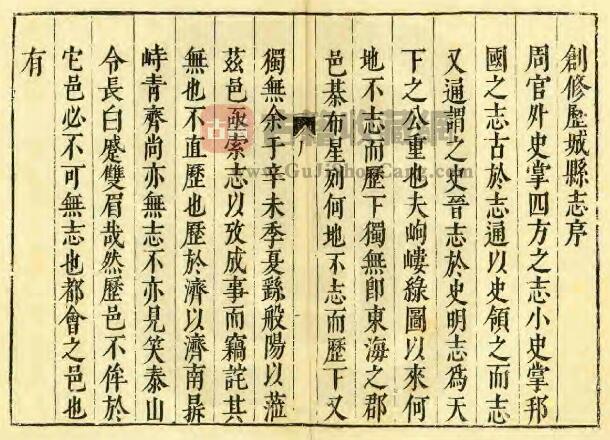 創修歷城縣志序
周官外史掌四方之志小史掌邦
國之志古於志通以史領之而志
又通謂之史晉志於史明志為天
下之公重也夫岣嶁綠圖以來何
地不志而歷下獨無卽東海之郡
邑棊布星列何地不志而歷下又
獨無余于辛未季夏繇般陽以蒞
茲邑亟索志以攷成事而竊詫其
無也不直歷也歷於濟以濟南嶽
峙青齊尚亦無志不亦見笑泰山
令長白蹙雙眉哉然歷邑不侔於
它邑必不可無志也都會之邑也
有
www.GuJiShouCang.com